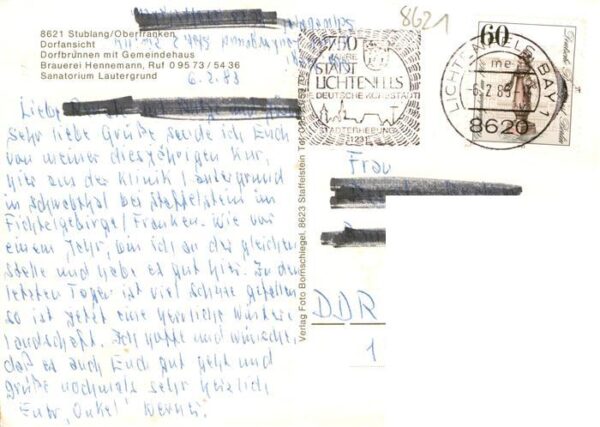 8621 Stublang/Oberfranken
Dorfansicht
Dorfbrunnen mit Gemeindehaus
Brauerei Hennemann, Ruf 0 95 73 / 54 36
Sanatorium Lautergrund
6.2.83
Liebe
Sehr liebe Grüße sende ich Euch
von meiner diesjährigen Kur,
hier aus der Klinik Lautergrund
in Schwabthal bei Staffelstein im
Fichtelgebirge/Franken. Wie vor
einem Jahr, bin ich an der gleichen
Stelle und habe es gut hier. In den
letzten Tagen ist viel Schnee gefallen
so ist jetzt eine herrliche Winter-
landschaft. Ich hoffe und wünsche,
daß es auch Euch gut geht und
grüße nochmals sehr herzlich
Euer "Onkel" Werner.
Verlag Foto Bornschlegel, 8623 Staffelstein
8621
750
JAHRE
STADT
LICHTENFELS
DEUTSCHE KORBSTADT
STADTERHEBUNG
1231
LICHTENFELS, BAY 1
me
8620
60
Deutsche Bundespost Berlin
Frau
DDR
1